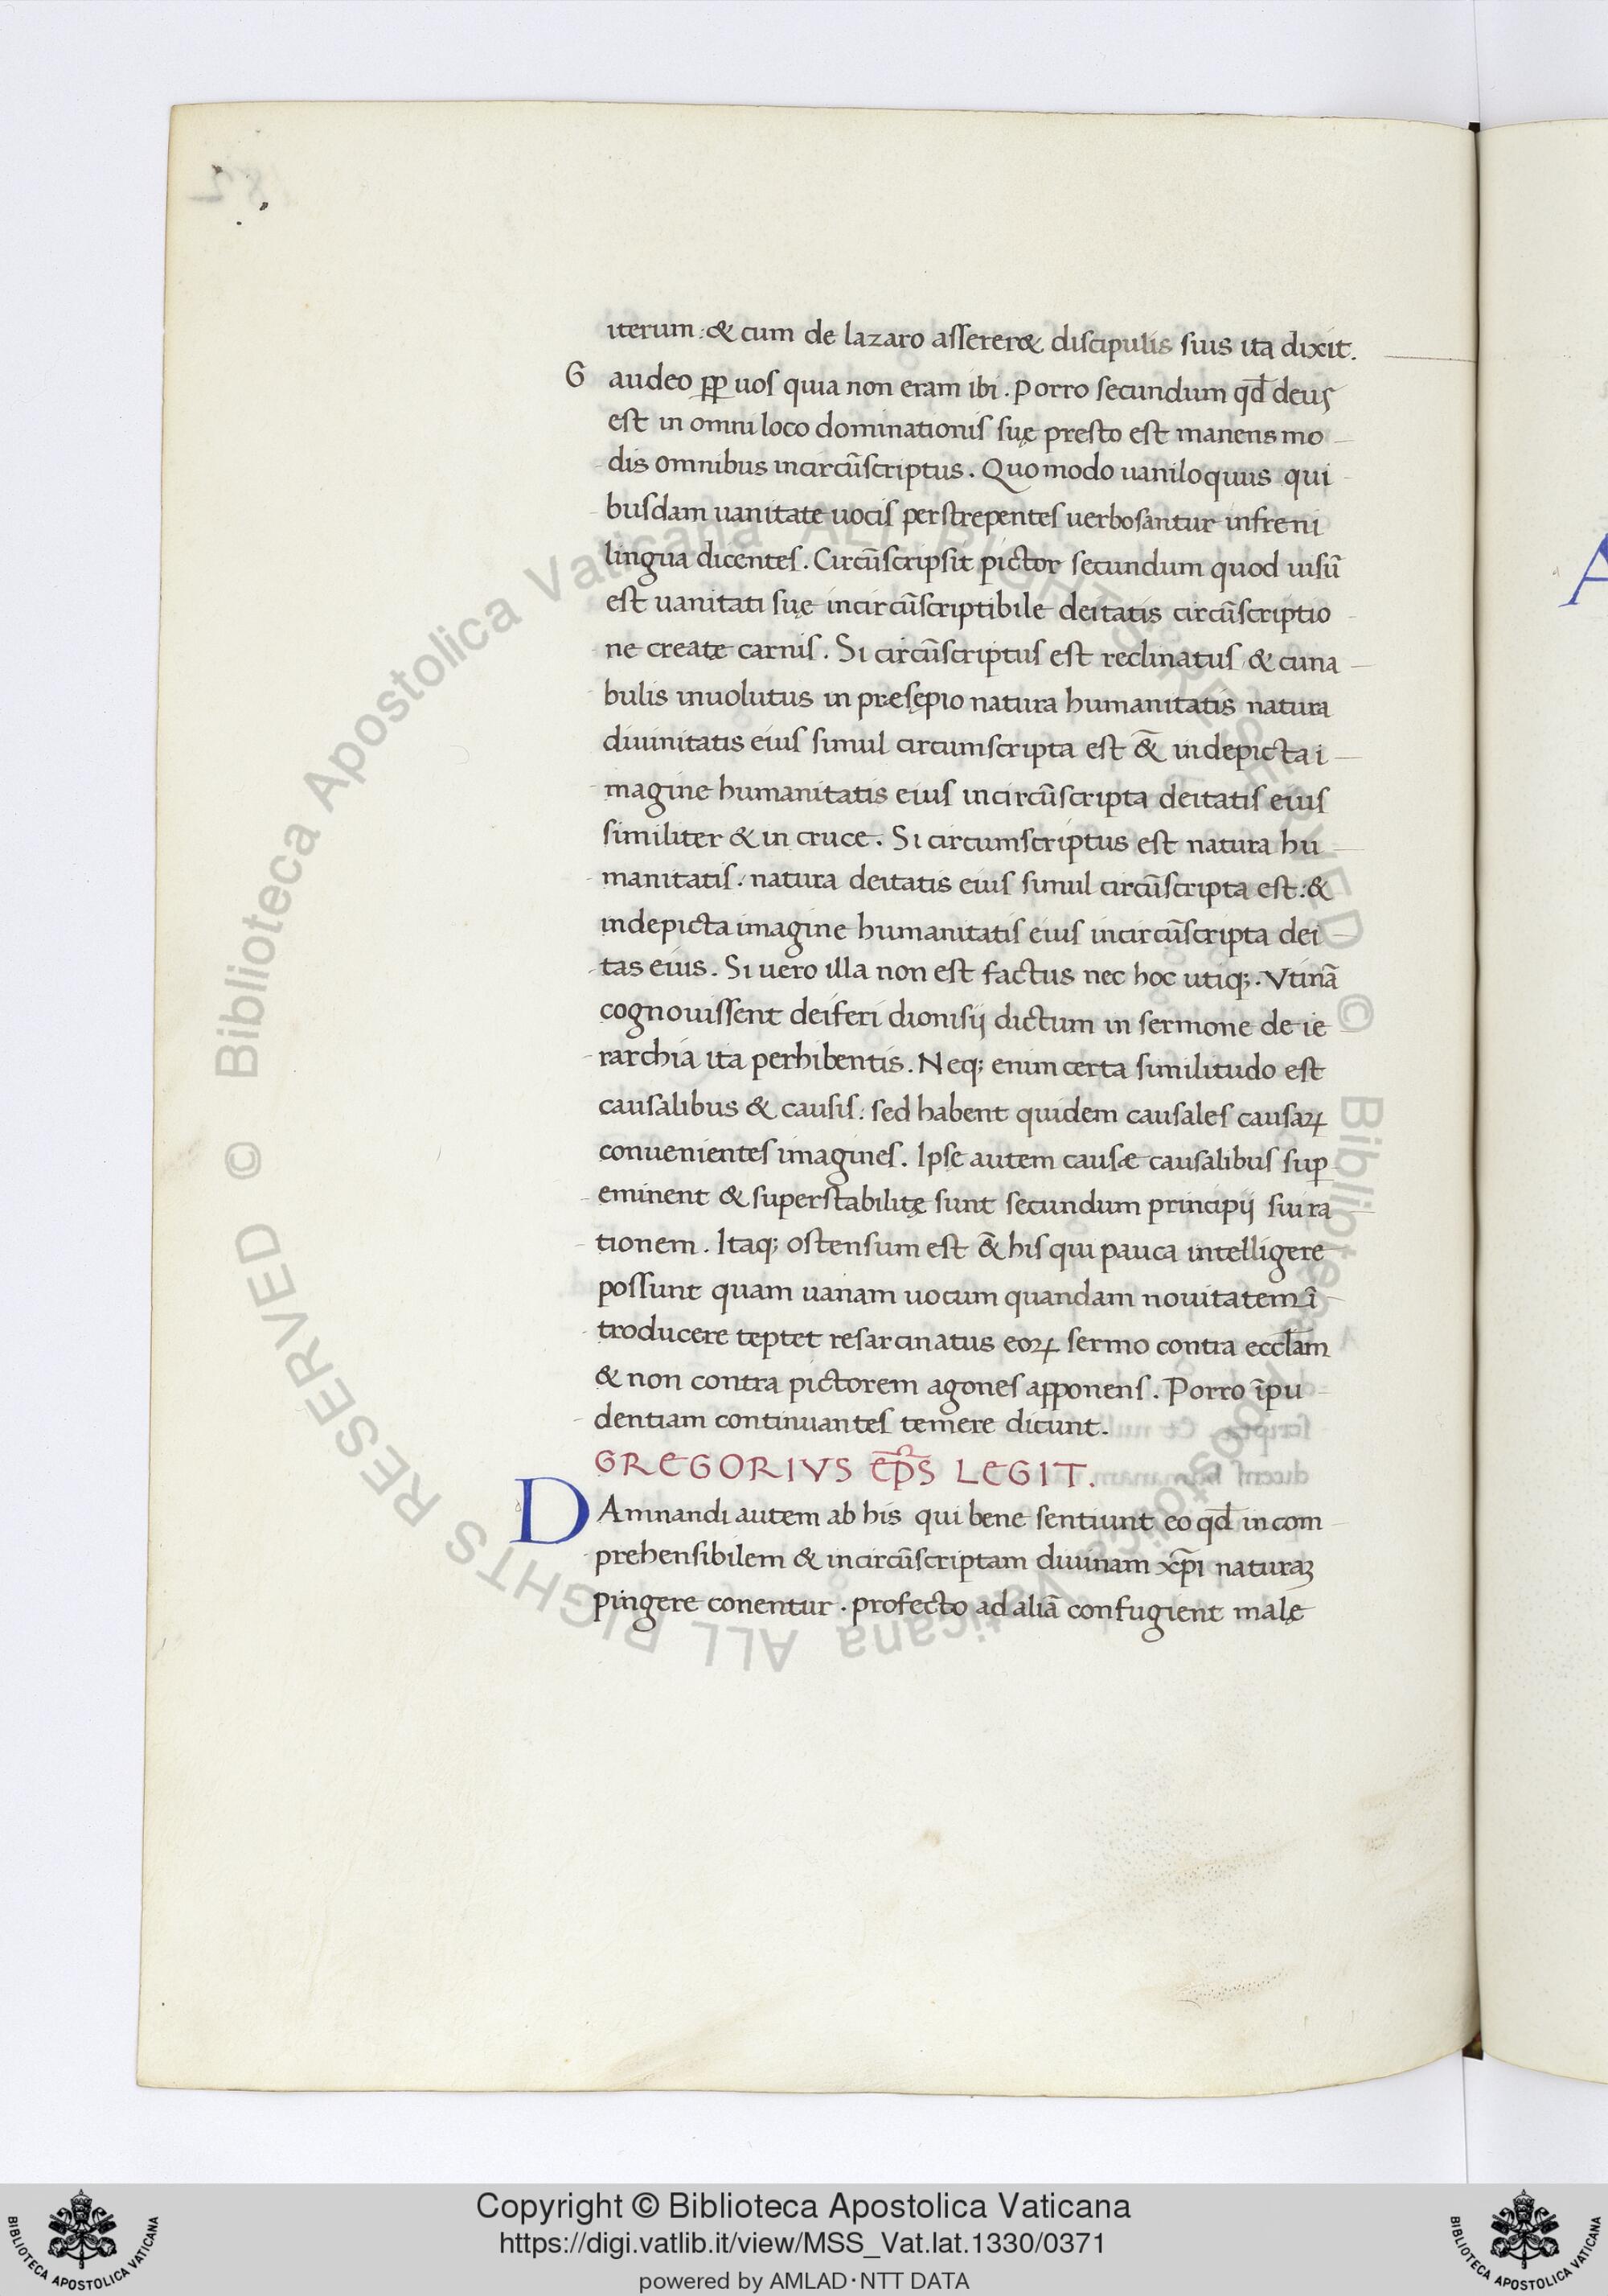 iterum: & cum de lazaro asserer& discipulis suis ita dixit.
Gaudeo ꝓp uos quia non eram ibi. Porro secundum qd̄ deus
est in omni loco dominationis suę presto est manens mo
dis omnibus incircūscriptus. Quomodo uaniloquus qui
busdam uanitate uocis perstrepentes uerbosantur infreni
lingua dicentes. Circūscripsit pictor secundum quod uisū
est uanitati suę incircūscriptibile deitatis circūscriptio
ne creatę carnis. Si circūscriptus est reclinatus & cuna
bulis inuolutus in presępio natura humanitatis natura
diuinitatis eius simul circumscripta est &̄ indepicta i
magine humanitatis eius incircūscripta deitatis eius
similiter & in cruce. Si circumscriptus est natura hu
manitatis: natura deitatis eius simul circūscripta est: &
indepicta imagine humanitatis eius incircūscripta dei
tas eius. Si uero illa non est factus nec hoc utiq;. Vtinā
cognouissent deiferi dionisij dictum in sermone de ie
rarchia ita perhibentis. Neq; enim certa similitudo est
causalibus & causis: sed habent quidem causales causaꝝ
conuenientes imagines. Ipse autem causæ causalibus suꝑ
eminent & superstabilitę sunt secundum principij sui ra
tionem. Itaq; ostensum est &̄ his qui pauca intelligere
possunt quam uanam uocum quandam nouitatem ī
troducere teptet resarcinatus eoꝝ sermo contra eccl̄am
& non contra pictorem agones apponens. Porro īpu
dentiam continuantes temere dicunt.
GREGORIVS EP̄S LEGIT.
DAmnandi autem ab his qui bene sentiunt eo qd̄ incom
prehensibilem & incircūscriptam diuinam xp̄i naturaꝫ
pingere conentur. profecto ad aliā confugient malę
Copyright © Biblioteca Apostolica Vaticana
https://digi.vatlib.it/view/MSS_Vat.lat.1330/0371
powered by AMLAD·NTT DATA
BIBLIOTECA APOSTOLICA VATICANA
BIBLIOTECA APOSTOLICA VATICANA
© Biblioteca Apostolica Vaticana ALL RIGHTS RESERVED © Biblioteca Apostolica Vaticana ALL RIGHTS RESERVED